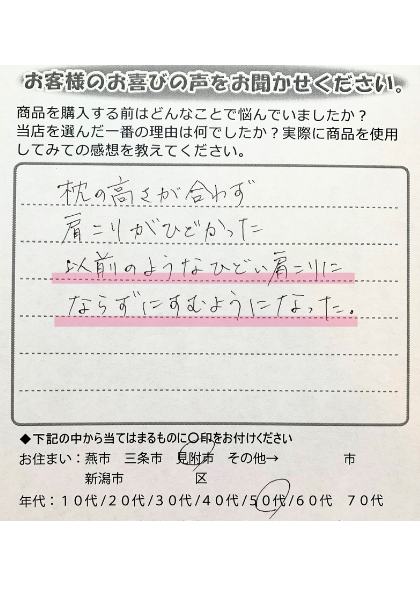 お客様のお喜びの声をお聞かせください。
商品を購入する前はどんなことで悩んでいましたか？
当店を選んだ一番の理由は何でしたか？実際に商品を使用
してみての感想を教えてください。
枕の高さが合わず
肩こりがひどかった
以前のようなひどい肩こりに
ならずにすむようになった。
◆下記の中から当てはまるものに〇印をお付けください
お住まい：燕市　三条市　見附市　その他→　　　　　市
新潟市　　　　　　区
年代：１０代/２０代/３０代/４０代/５０代/６０代　７０代